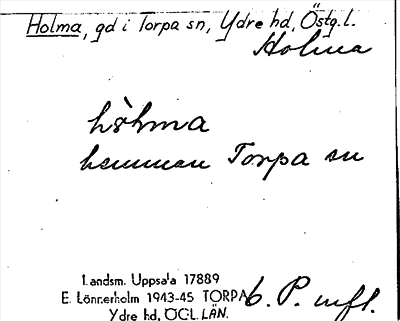 Holma, gd i Torpa sn, Ydre hd, Östg. l.
Holma
hòhma
hemman Torpa sn
Landsm. Uppsala 17889
E. Lönnerholm 1943-45 TORPA
Ydre hd, ÖGL. LÄN.
6. P. mfl.